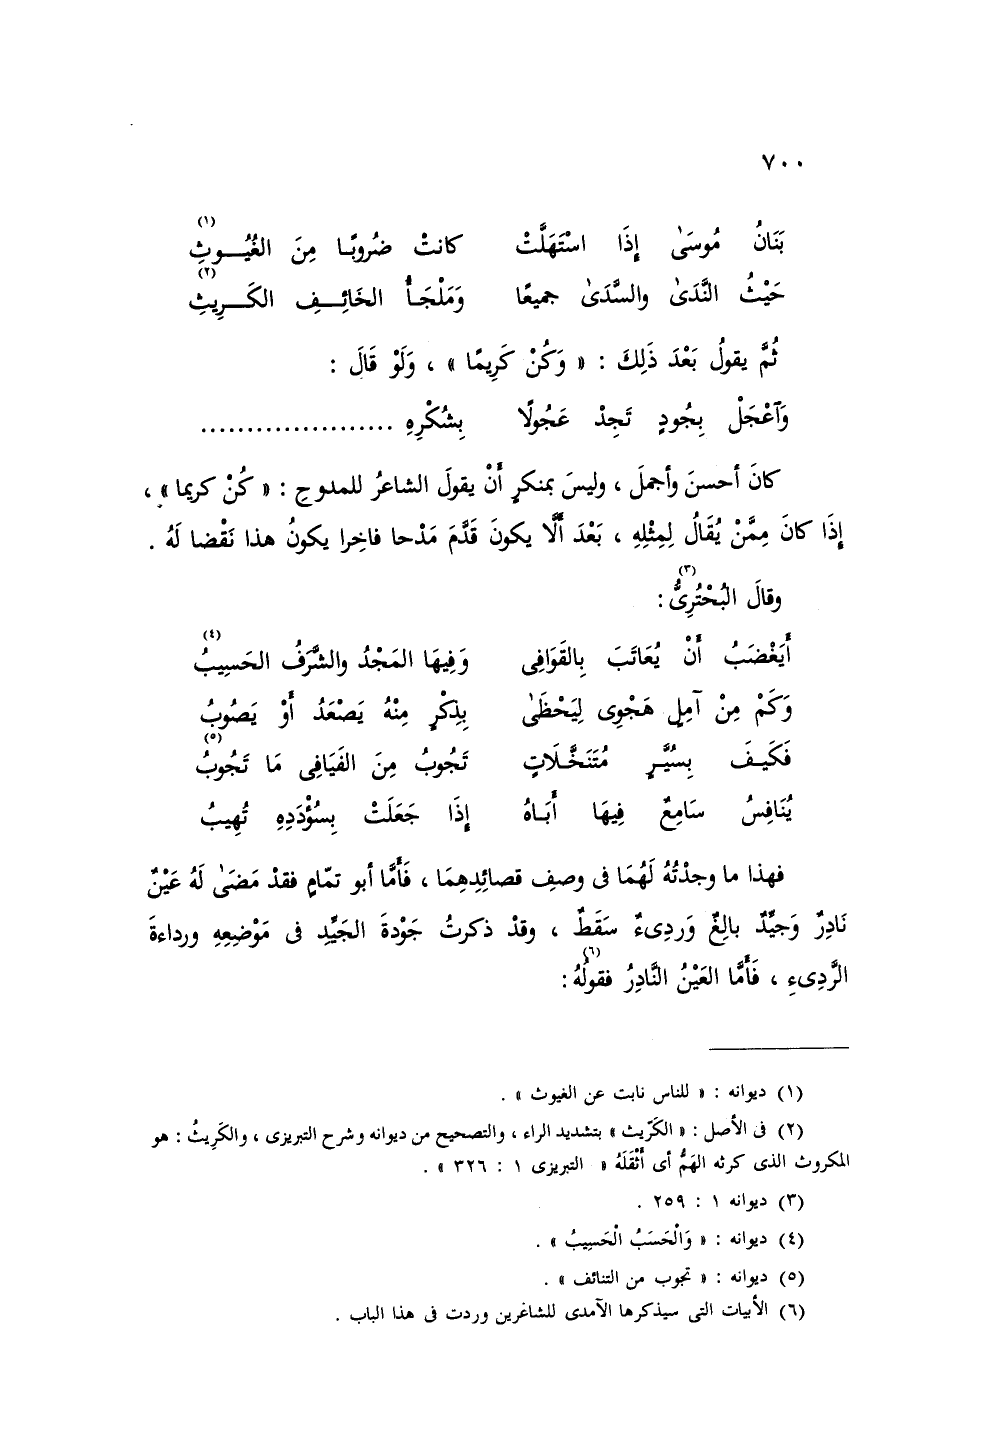 ٧٠٠
بَنَانُ مُوسَىٰ إِذَا اسْتَهَلَّتْ كانتْ ضُروبًا مِنَ الغُيُوثِ (١)
حَيْثُ النَّدَىٰ والسَّدَىٰ جميعًا وَمَلْجَأُ الخَائِفِ الكَرِيثِ (٢)
ثُمَّ يقولُ بَعْدَ ذَلِكَ : « وَكُنْ كَرِيمًا » ، وَلَوْ قَالَ :
وَٱعْجَلْ بِجُودٍ تَجِدْ عَجُولًا بِشُكْرِهِ .....................
كانَ أحسنَ وأجملَ ، وليسَ بمنكرٍ أَنْ يقولَ الشاعرُ للمدوحِ : « كُنْ كريما » ،
إِذَا كانَ مِمَّنْ يُقَالُ لِمِثْلِهِ ، بَعْدَ أَلَّا يكونَ قَدَّمَ مَدْحا فاخِرا يكونُ هذا نَقْضا لَهُ .
وقالَ البُحْتُرِىُّ (٣) :
أَيَغْضَبُ أَنْ يُعَاتَبَ بِالقَوَافِى وَفِيهَا المَجْدُ والشَّرَفُ الحَسِيبُ (٤)
وَكَمْ مِنْ آمِلٍ هَجْوِى لِيَحْظَىٰ بِذِكْرٍ مِنْهُ يَصْعَدُ أَوْ يَصُوبُ
فَكَيفَ بِسُيَّرٍ مُتَنَخَّلَاتٍ تَجُوبُ مِنَ الفَيَافِى مَا تَجُوبُ (٥)
يُنَافِسُ سَامِعٌ فِيهَا أَبَاهُ إِذَا جَعَلَتْ بِسُؤْدَدِهِ تُهِيبُ
فهذا ما وجدْتُهُ لَهُمَا فى وصفِ قصائِدِهِمَا ، فَأَمَّا أبو تمّامٍ فقدْ مَضَىٰ لَهُ عَيْنٌ
نَادِرٌ وَجيِّدٌ بالِغٌ وَردِىءٌ سَقَطٌ ، وقدْ ذكرتُ جَوْدةَ الجَيِّدِ فى مَوْضِعِهِ ورداءةَ
الرَّدِىءِ ، فَأَمَّا العَيْنُ النَّادِرُ فقولُهُ (٦) :
(١) ديوانه : « للناس نابت عن الغيوث » .
(٢) فى الأصل : « الكَرّيث » بتشديد الراء ، والتصحيح من ديوانه وشرح التبريزى ، والكَرِيثُ : هو
المكروث الذى كرثه الهَمُّ أى أَثْقَلَهُ « التبريزى ١ : ٣٢٦ » .
(٣) ديوانه ١ : ٢٥٩ .
(٤) ديوانه : « وَالْحَسَبُ الْحَسِيبُ » .
(٥) ديوانه : « تجوب من التنائف » .
(٦) الأبيات التى سيذكرها الآمدى للشاغرين وردت فى هذا الباب .